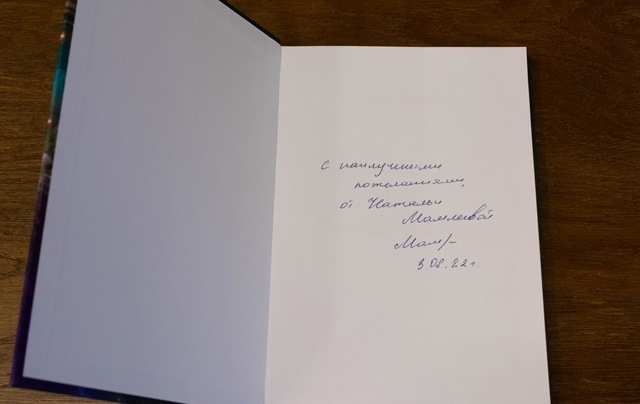 с наилучшими
пожеланиями,
от Натальи
Мамлеевой
Мам
3.08.22г.